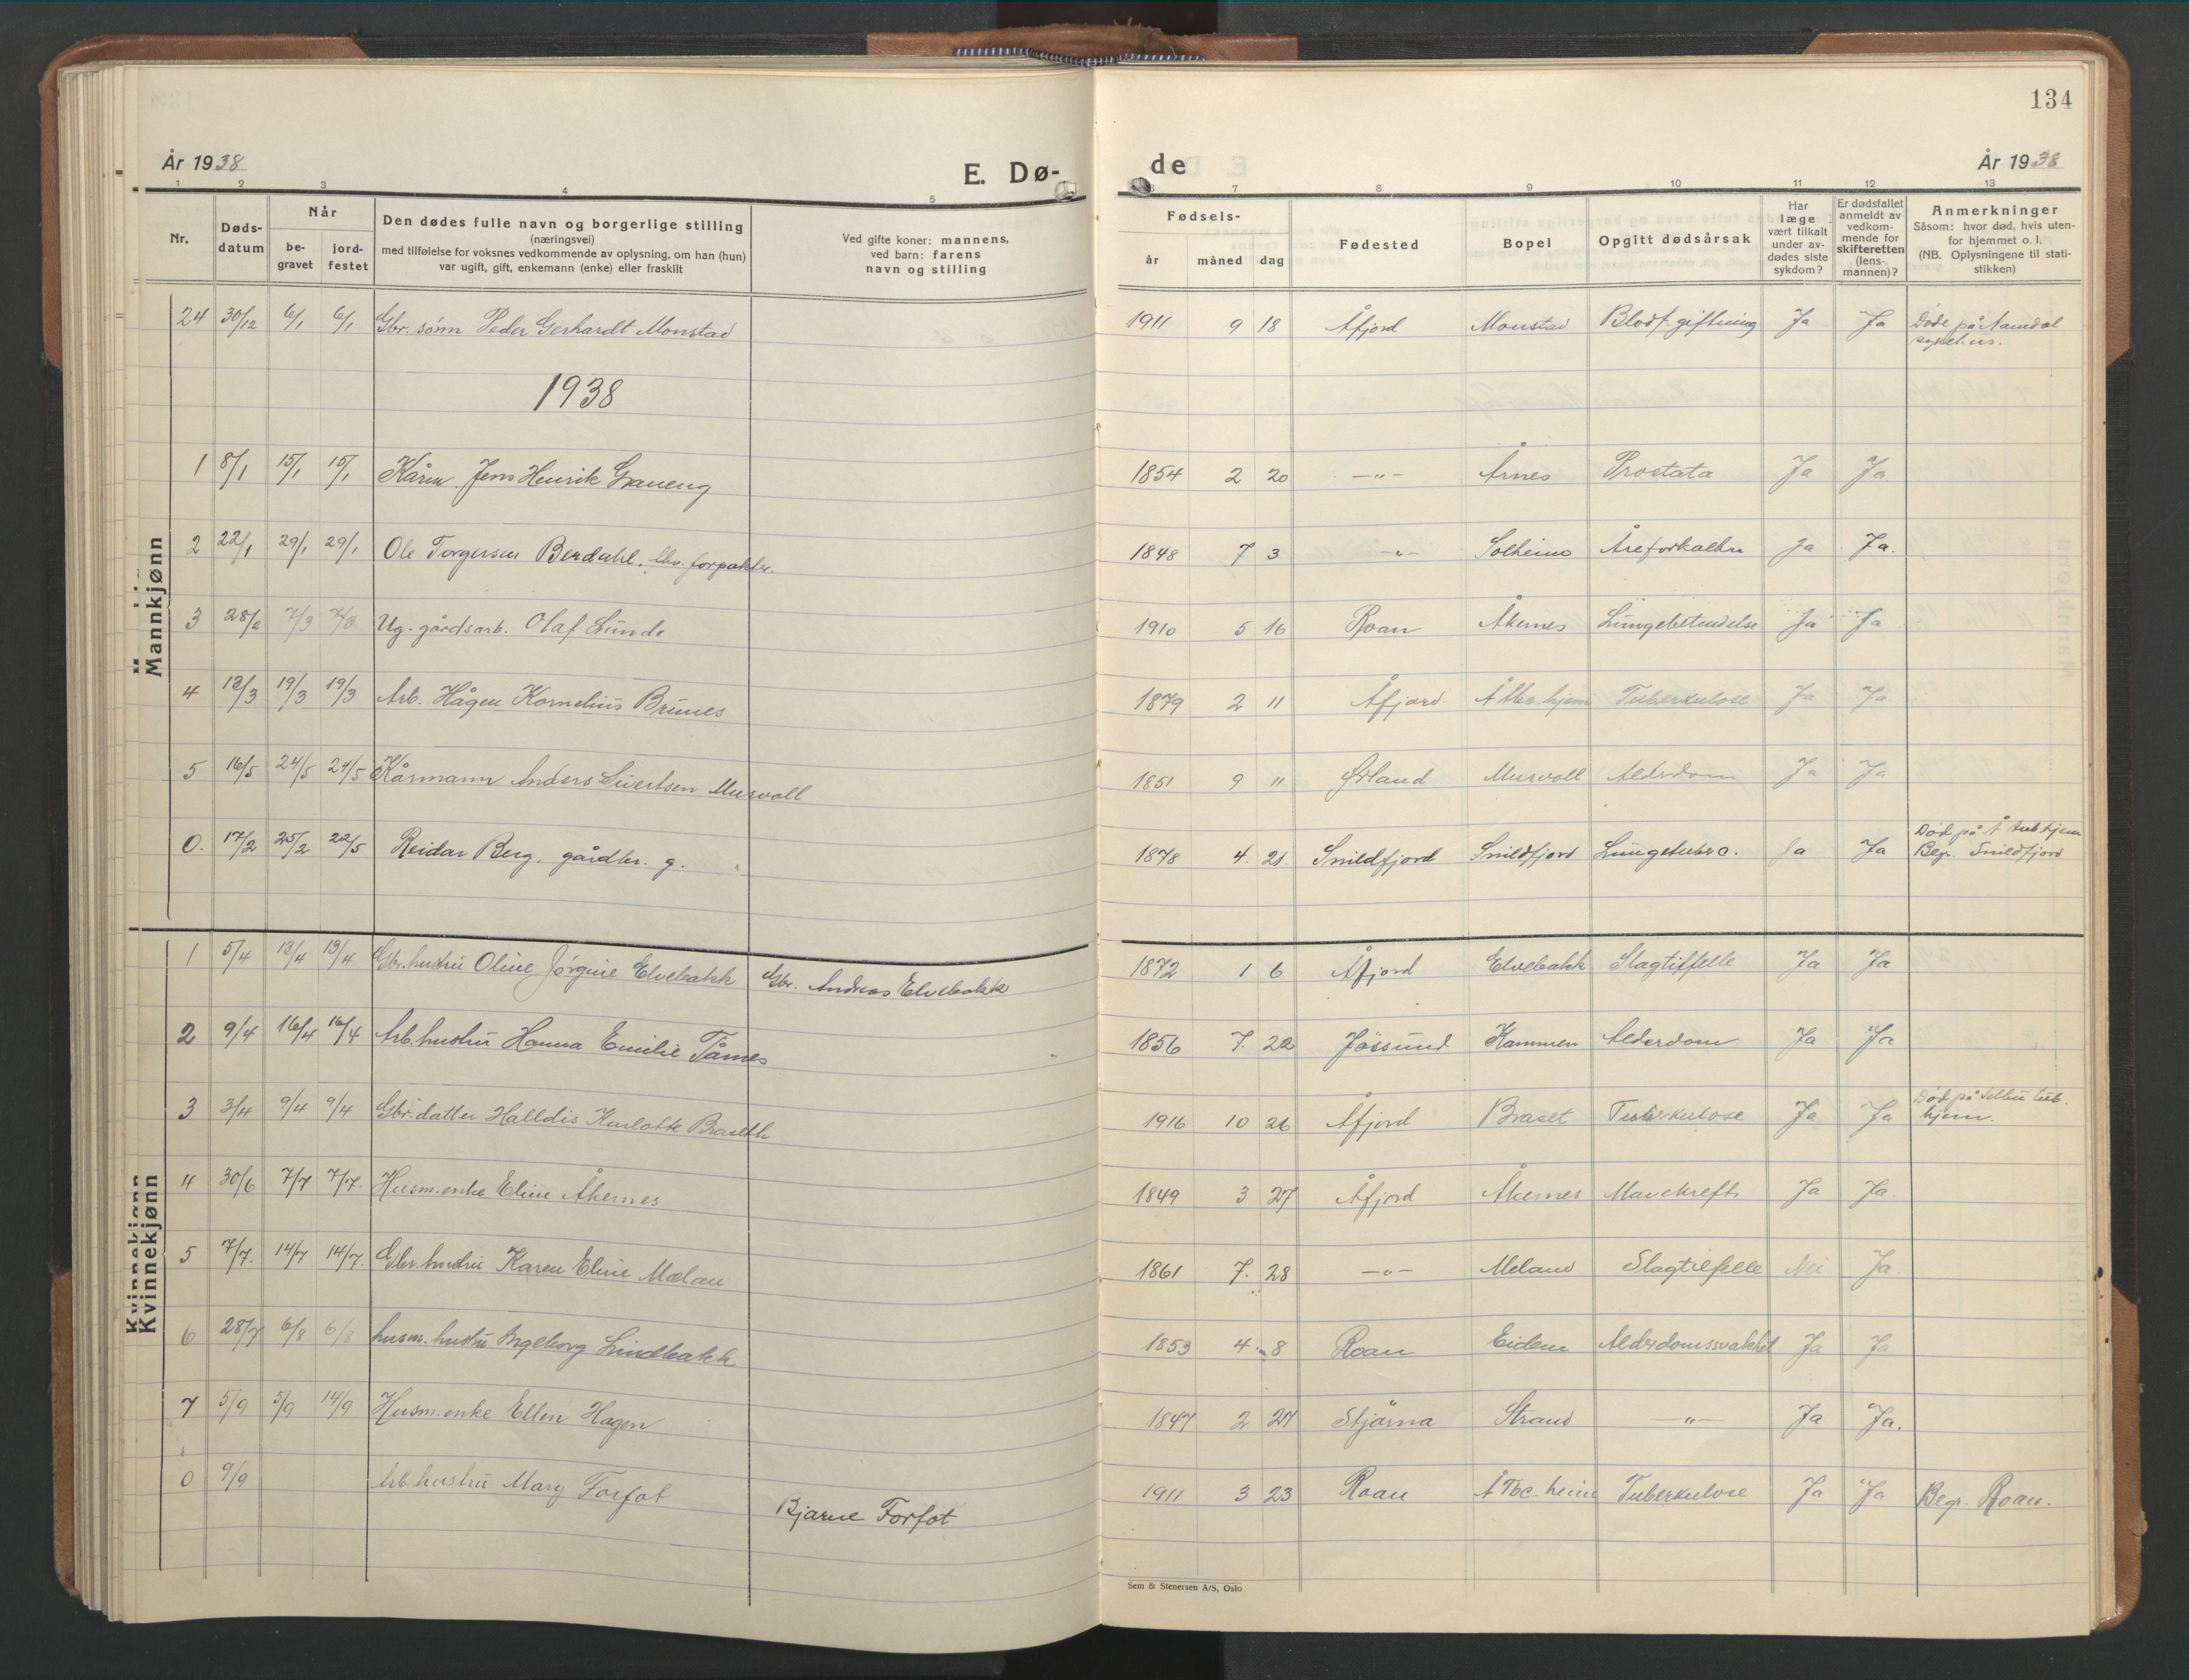 134
År 1938
E. Dø-
de
År 1938
1 2 3 4 5 6 7 8 9 10 11 12 13
Nr.
Døds-
datum
Når
be-
gravet
jord-
festet
Den dødes fulle navn og borgerlige stilling
(næringsvei)
med tilføielse for voksnes vedkommende av oplysning, om han (hun)
var ugift, gift, enkemann (enke) eller fraskilt
Ved gifte koner: mannens,
ved barn: farens
navn og stilling
Fødsels-
år måned dag
Fødested
Bopel
Opgitt dødsårsak
Har
læge
vært tilkalt
under av-
dødes siste
sykdom?
Er dødsfallet
anmeldt av
vedkom-
mende for
skifteretten
(lens-
mannen)?
Anmerkninger
Såsom: hvor død, hvis uten-
for hjemmet o. l.
(NB. Oplysningene til stati-
stikken)
24 30/12 6/1 6/1 Gbr. sønn Peder Gerhardt Monstad 1911 9 18 Åfjord Monstad Blodf.giftning Ja Ja Døde på Namdal
sykehus.
1938
Mannkjønn
1 8/1 15/1 15/1 Kårm. Jens Henrik Graneng 1854 2 20 —"— Årnes Prostata Ja Ja
2 22/1 29/1 29/1 Ole Torgersen Berdahl. forpakter. 1848 7 3 —"— Solheim Åreforkalkn Ja Ja.
3 28/2 7/3 7/3 Ug. gårdsarb. Olaf Lunde 1910 5 16 Roan Åkernes Lungebetendelse Ja Ja
4 12/3 19/3 19/3 Arb. Hågen Kornelius Brunes 1879 2 11 Åfjord Å Tbc. hjem Tuberkulose Ja Ja
5 16/5 24/5 24/5 Kårmann Anders Sivertsen Murvoll 1851 9 11 Ørland Murvoll Alderdom Ja Ja
0. 17/2 25/2 22/5 Reidar Berg, gårdbr. g. 1878 4. 21. Snildfjord Snildfjord Lungetuberc. Ja Ja Død på Å tub hjem
Begr. Snildfjord
Kvinnekjønn
Kvinnekjønn
1 5/4 13/4 13/4 Gbr.hustru Oline Jørgine Elvebakk Gbr. Andreas Elvebakk 1872 1 6 Åfjord Elvebakk Slagtilfelle Ja Ja
2 9/4 16/4 16/4 Arb.hustru Hanna Emilie Tårnes 1856 7. 22 Jøssund Kammen Alderdom Ja Ja
3 3/4 9/4 9/4 Gbr.datter Halldis Karlotte Braseth 1916 10 26 Åfjord Braset Tuberkulose Ja Ja Død på Selbu tub.
hjem.
4 30/6 7/7 7/7. Husm.enke Eline Åkernes 1849 3 27 Åfjord Åkernes Mavekreft Ja Ja.
5 7/7. 14/7 14/7. Gbr.hustru Karen Eline Mælan 1861 7. 28 —"— Meland Slagtilfelle Nei Ja.
6 28/7 6/8 6/8 husm. hustru Ingeborg Lindbakk 1853 4 8 Roan Eidem Alderdomssvakhet Ja Ja
7 5/9 5/9 14/9 Husm.enke Ellen Hagen 1847 2 27 Stjørna Strand —"— Ja Ja.
0 9/9 Arb.hustru Mary Forfot Bjarne Forfot 1911 3 23 Roan Å Tbc-heim Tuberkulose Ja Ja Begr. Roan.
Sem & Stenersen A/S, Oslo